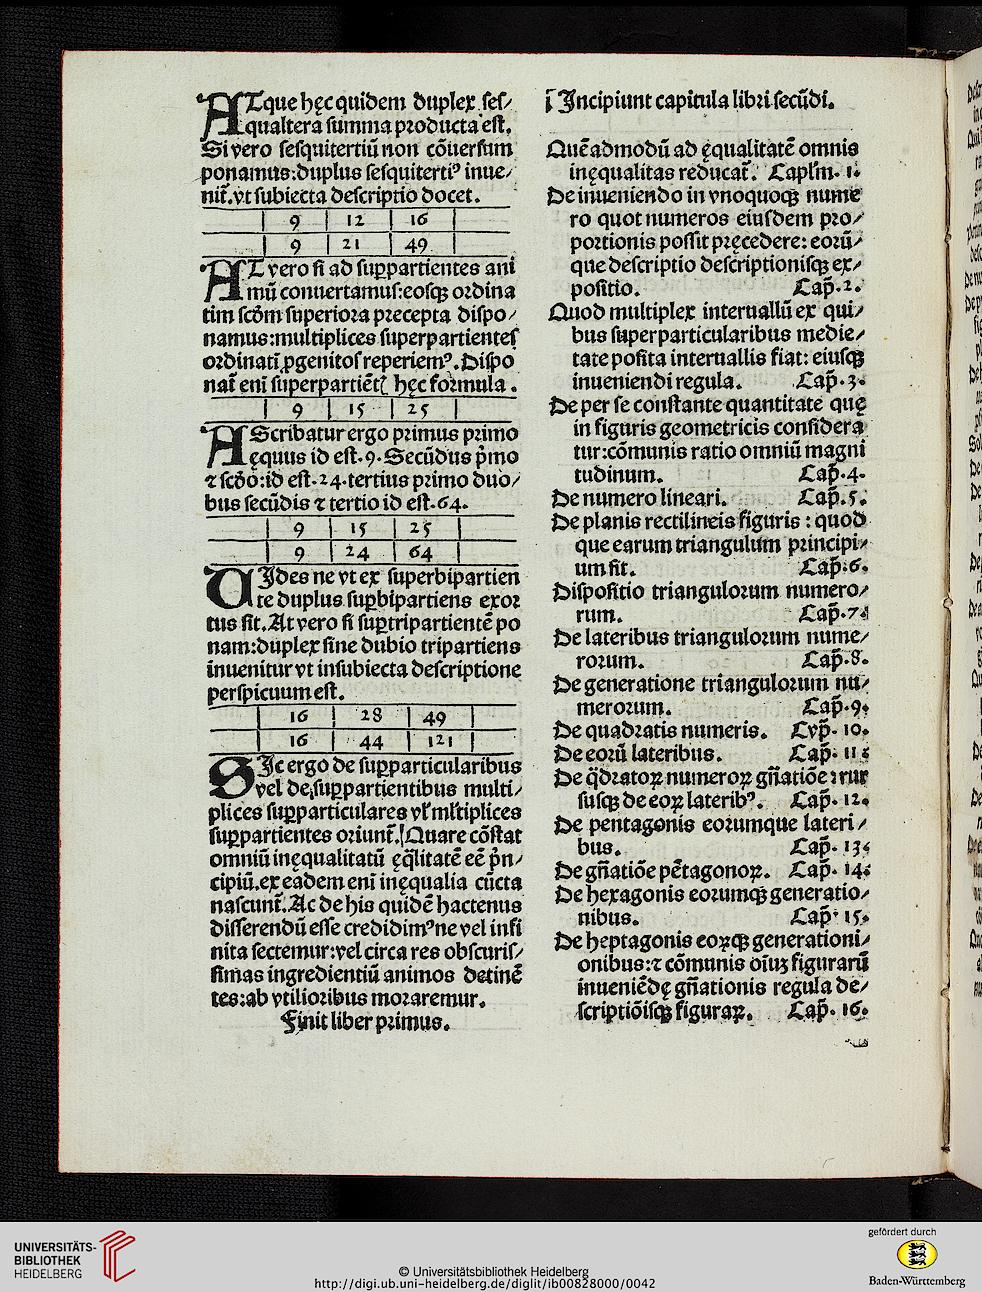 ATque hęc quidem duplex ſeſ⸗
qualtera ſumma producta eſt.
Si vero ſeſquitertiū non cōuerſum
ponamus: duplus ſeſquiterti⁹ inue⸗
nit̃. vt ſubiecta deſcriptio docet.
9 | 12 | 16
9 | 21 | 49
AT vero ſi ad ſup̱partientes ani
mū conuertamuſ: eoſqꝫ ordina
tim ſcd̃m ſuperiora precepta diſpo⸗
namus: multiplices ſuperpartienteſ
ordinati ꝓgenitoſ reperiem⁹. Diſpo
nat̃ eni ſuperpartiēt hęc formula.
9 | 15 | 25
AScribatur ergo primus primo
ęquus id eſt. 9. Secūdus p̃mo
⁊ ſcd̃o: id eſt. 24. tertius primo duo⸗
bus ſecūdis ⁊ tertio id eſt. 64.
9 | 15 | 25
9 | 24 | 64
UIdes ne vt ex ſuperbipartien
te duplus ſup̱bipartiens exor
tus ſit. At vero ſi ſup̱tripartientē po
nam: duplex ſine dubio tripartiens
inuenitur vt in ſubiecta deſcriptione
perſpicuum eſt.
16 | 28 | 49
16 | 44 | 121
SIc ergo de ſup̱particularibus
vel de ſup̱partientibus multi⸗
plices ſup̱particulares vl̃ ml̃tiplices
ſup̱partientes oriunt̃. Quare cōſtat
omniū inęqualitatū ęq̃litatē eē p̃n⸗
cipiū. ex eadem eni inęqualia cūcta
naſcunt̃. Ac de his quidē hactenus
diſſerendū eſſe credidim⁹ ne vel infi
nita ſectemur: vel circa res obſcuriſ⸗
ſimas ingredientiū animos detinē
tes: ab vtilioribus moraremur.
Finit liber primus.
Incipiunt capitula libri ſecūdi.
Quēadmodū ad ęqualitatē omnis
inęqualitas reducat̃. Capl̃m. 1.
De inueniendo in vnoquoqꝫ nume
ro quot numeros eiuſdem pro⸗
portionis poſſit pręcedere: eorū⸗
que deſcriptio deſcriptioniſqꝫ ex⸗
poſitio. Cap̃. 2.
Quod multiplex interuallū ex qui⸗
bus ſuperparticularibus medie⸗
tate poſita interuallis fiat: eiuſqꝫ
inueniendi regula. Cap̃. 3.
De per ſe conſtante quantitate quę
in figuris geometricis conſidera
tur: cōmunis ratio omniū magni
tudinum. Cap̃. 4.
De numero lineari. Cap̃. 5.
De planis rectilineis figuris: quod
que earum triangulum principi⸗
um ſit. Cap̃. 6.
Diſpoſitio triangulorum numero⸗
rum. Cap̃. 7.
De lateribus triangulorum nume⸗
rorum. Cap̃. 8.
De generatione triangulorum nu⸗
merorum. Cap̃. 9.
De quadratis numeris. Cvp̃. 10.
De eorū lateribus. Cap̃. 11.
De q̃dratoꝝ numeroꝝ gñatiōe rur
ſuſqꝫ de eoꝝ laterib⁹. Cap̃. 12.
De pentagonis eorumque lateri⸗
bus. Cap̃. 13.
De gñatiōe pētagonoꝝ. Cap̃. 14.
De hexagonis eorumqꝫ generatio⸗
nibus. Cap̃. 15.
De heptagonis eoꝝqꝫ generationi⸗
onibus: ⁊ cōmunis oīuꝫ figurarū
inueniēdę gñationis regula de⸗
ſcriptiōiſqꝫ figuraꝝ. Cap̃. 16.
UNIVERSITÄTS-
BIBLIOTHEK
HEIDELBERG
© Universitätsbibliothek Heidelberg
http://digi.ub.uni-heidelberg.de/diglit/ib00828000/0042
gefördert durch
Baden-Württemberg